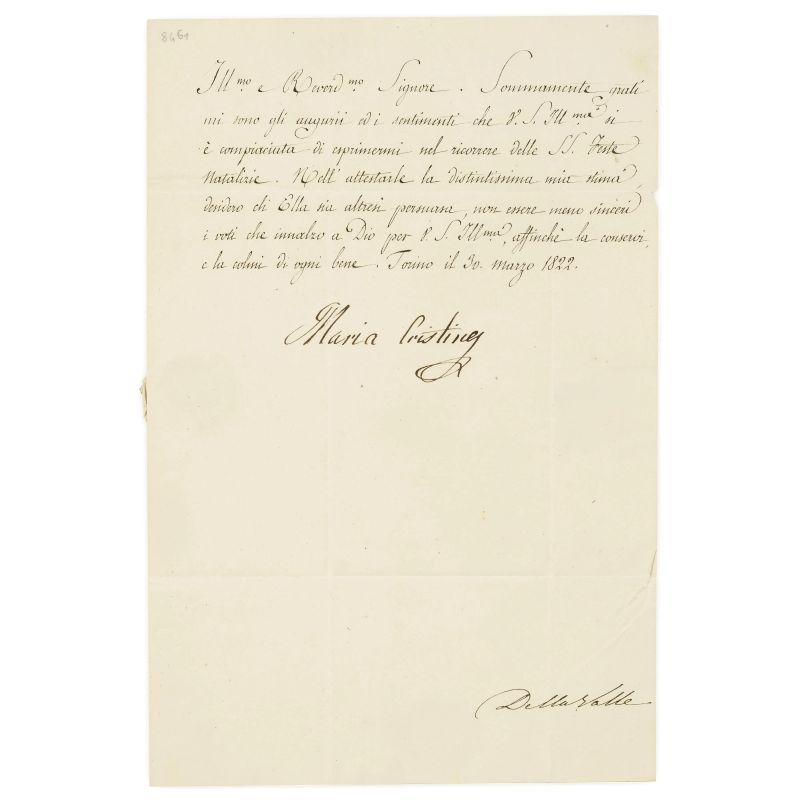 8461
Ill.mo e Reverd.mo Signore. Sommamente grati
mi sono gli augurii ed i sentimenti che V. S. Ill.ma si
è compiaciuta di esprimermi nel ricorrere delle SS. Feste
Natalizie. Nell' attestarle la distintissima mia stima,
desidero ch'Ella sia altresì persuasa, non essere meno sinceri
i voti che innalzo a Dio per V. S. Ill.ma, affinchè la conservi,
e la colmi di ogni bene. Torino il 30. marzo 1822.
Maria Cristina
Della Valle